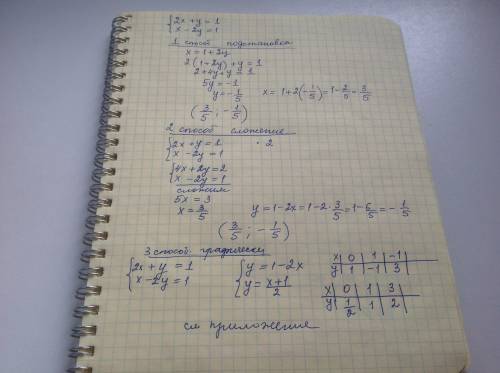 {2x + y = 1
{x - 2y = 1
1 способ подстановка
x = 1 + 2y
2(1 + 2y) + y = 1
2 + 4y + y = 1
5y = -1
y = -1/5   x = 1 + 2(-1/5) = 1 - 2/5 = 3/5
(3/5 ; -1/5)
2 способ сложение
{2x + y = 1   · 2
{x - 2y = 1
{4x + 2y = 2
{x - 2y = 1
сложим
5x = 3
x = 3/5   y = 1 - 2x = 1 - 2 · 3/5 = 1 - 6/5 = -1/5
(3/5 ; -1/5)
3 способ графически
{2x + y = 1   {y = 1 - 2x   x | 0 | 1 | -1
{x - 2y = 1   {y = x+1/2   y | 1 | -1 | 3
x | 0 | 1 | 3
y | 1/2 | 1 | 2
см приложение